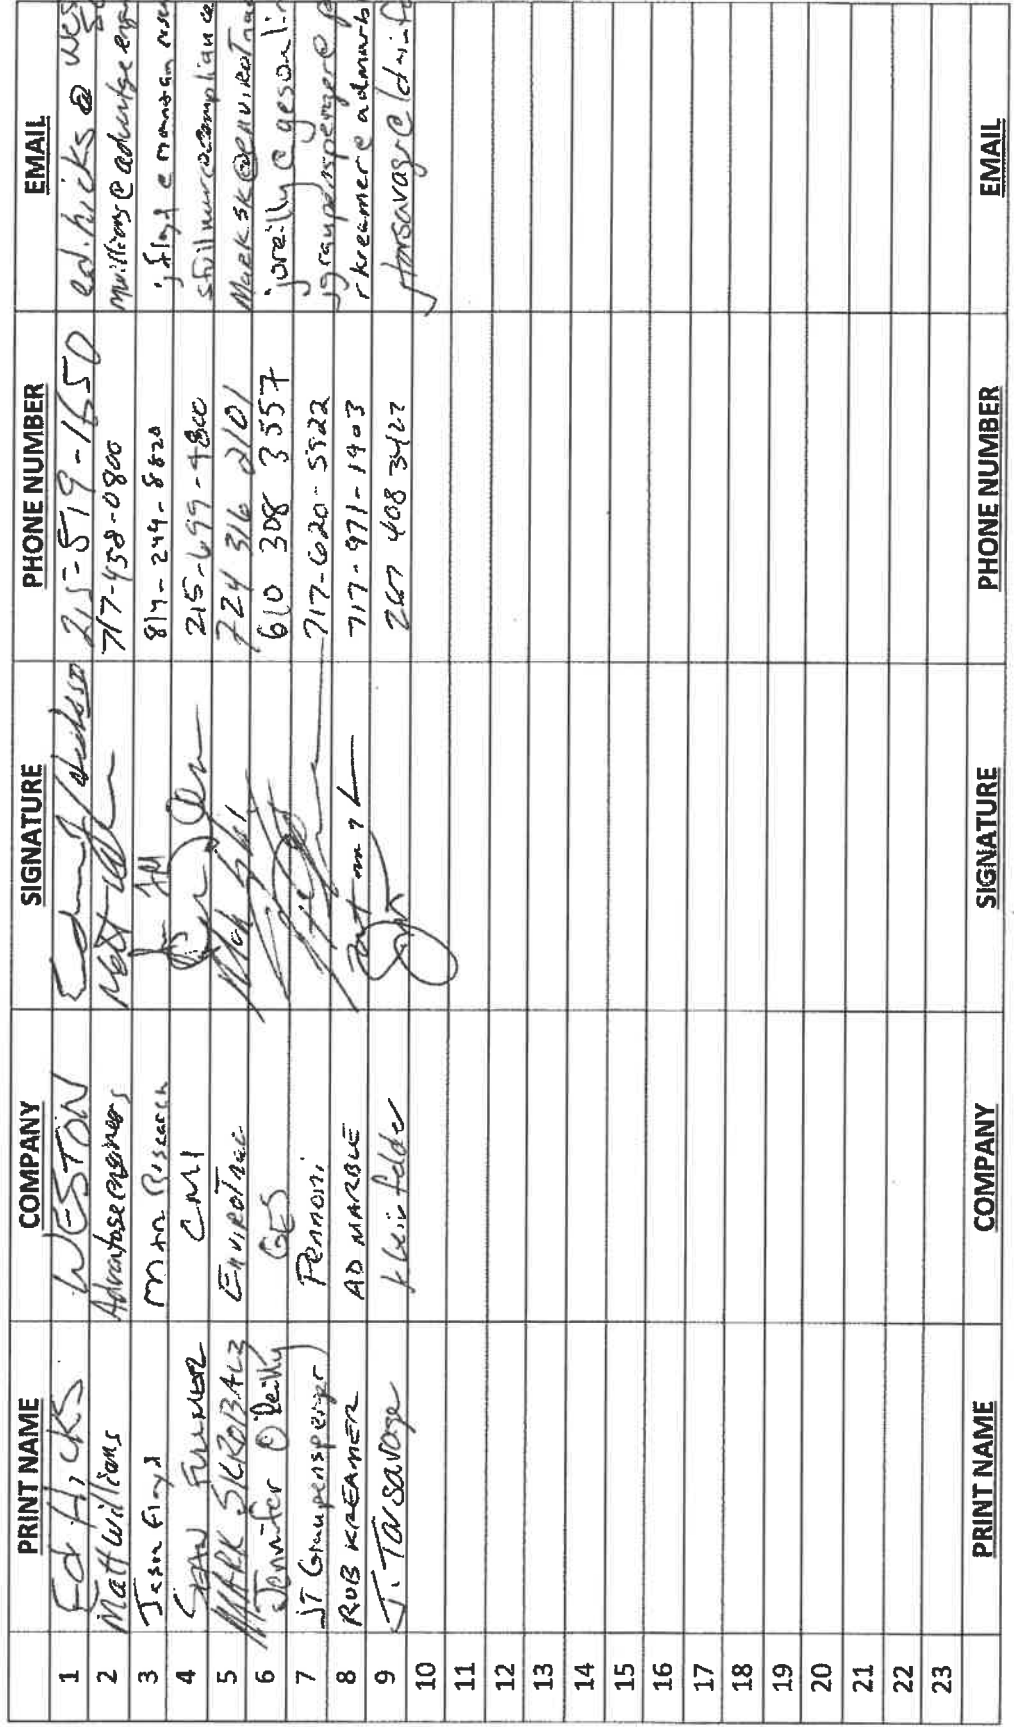 PRINT NAME COMPANY SIGNATURE PHONE NUMBER EMAIL
1 Ed Hicks WESTON 215-519-1650 ed.hicks@wes
2 Matt Williams Advantage engineers 717-458-0800 mwilliams@advantageeng
3 Jason Floyd Mann Research 814-244-8820 jfloyd@
4 SEAN FULLMER CMI 215-699-4800
5 MARK SKROBALZ EnviroTrac 724 316 2101 MARK.SK@ENVIROTrac
6 Jennifer O'Reilly GES 610 308 3557 joreilly@gesonlin
7 JT Graupensperger Pennoni 717-620-5922 jgraupensperger@p
8 ROB KREAMER AD MARBLE 717-971-1403 rkreamer@admarb
9 J. Tarsavage Kleinfelder 267 408 3422 jtarsavage@kleinfe
10
11
12
13
14
15
16
17
18
19
20
21
22
23
PRINT NAME COMPANY SIGNATURE PHONE NUMBER EMAIL